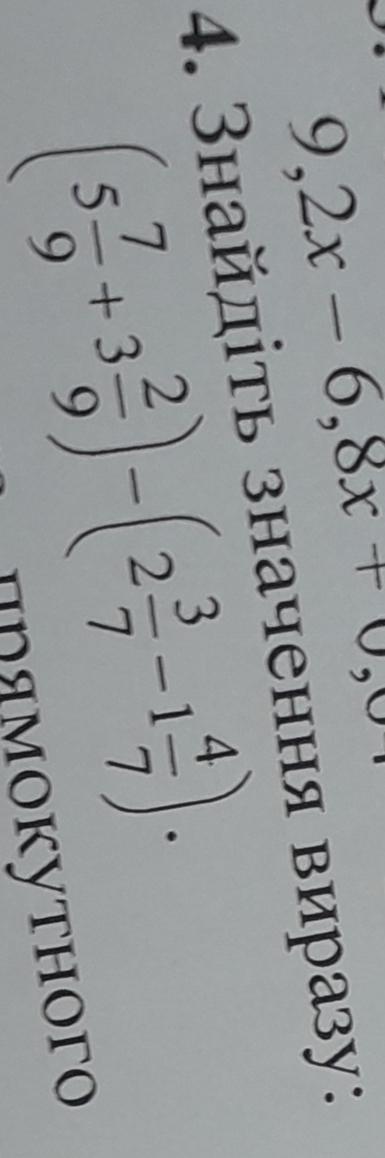 9,2x − 6,8x + 0,
4. Знайдіть значення виразу:
(5 7/9 + 3 2/9) − (2 3/7 − 1 4/7).
прямокутного